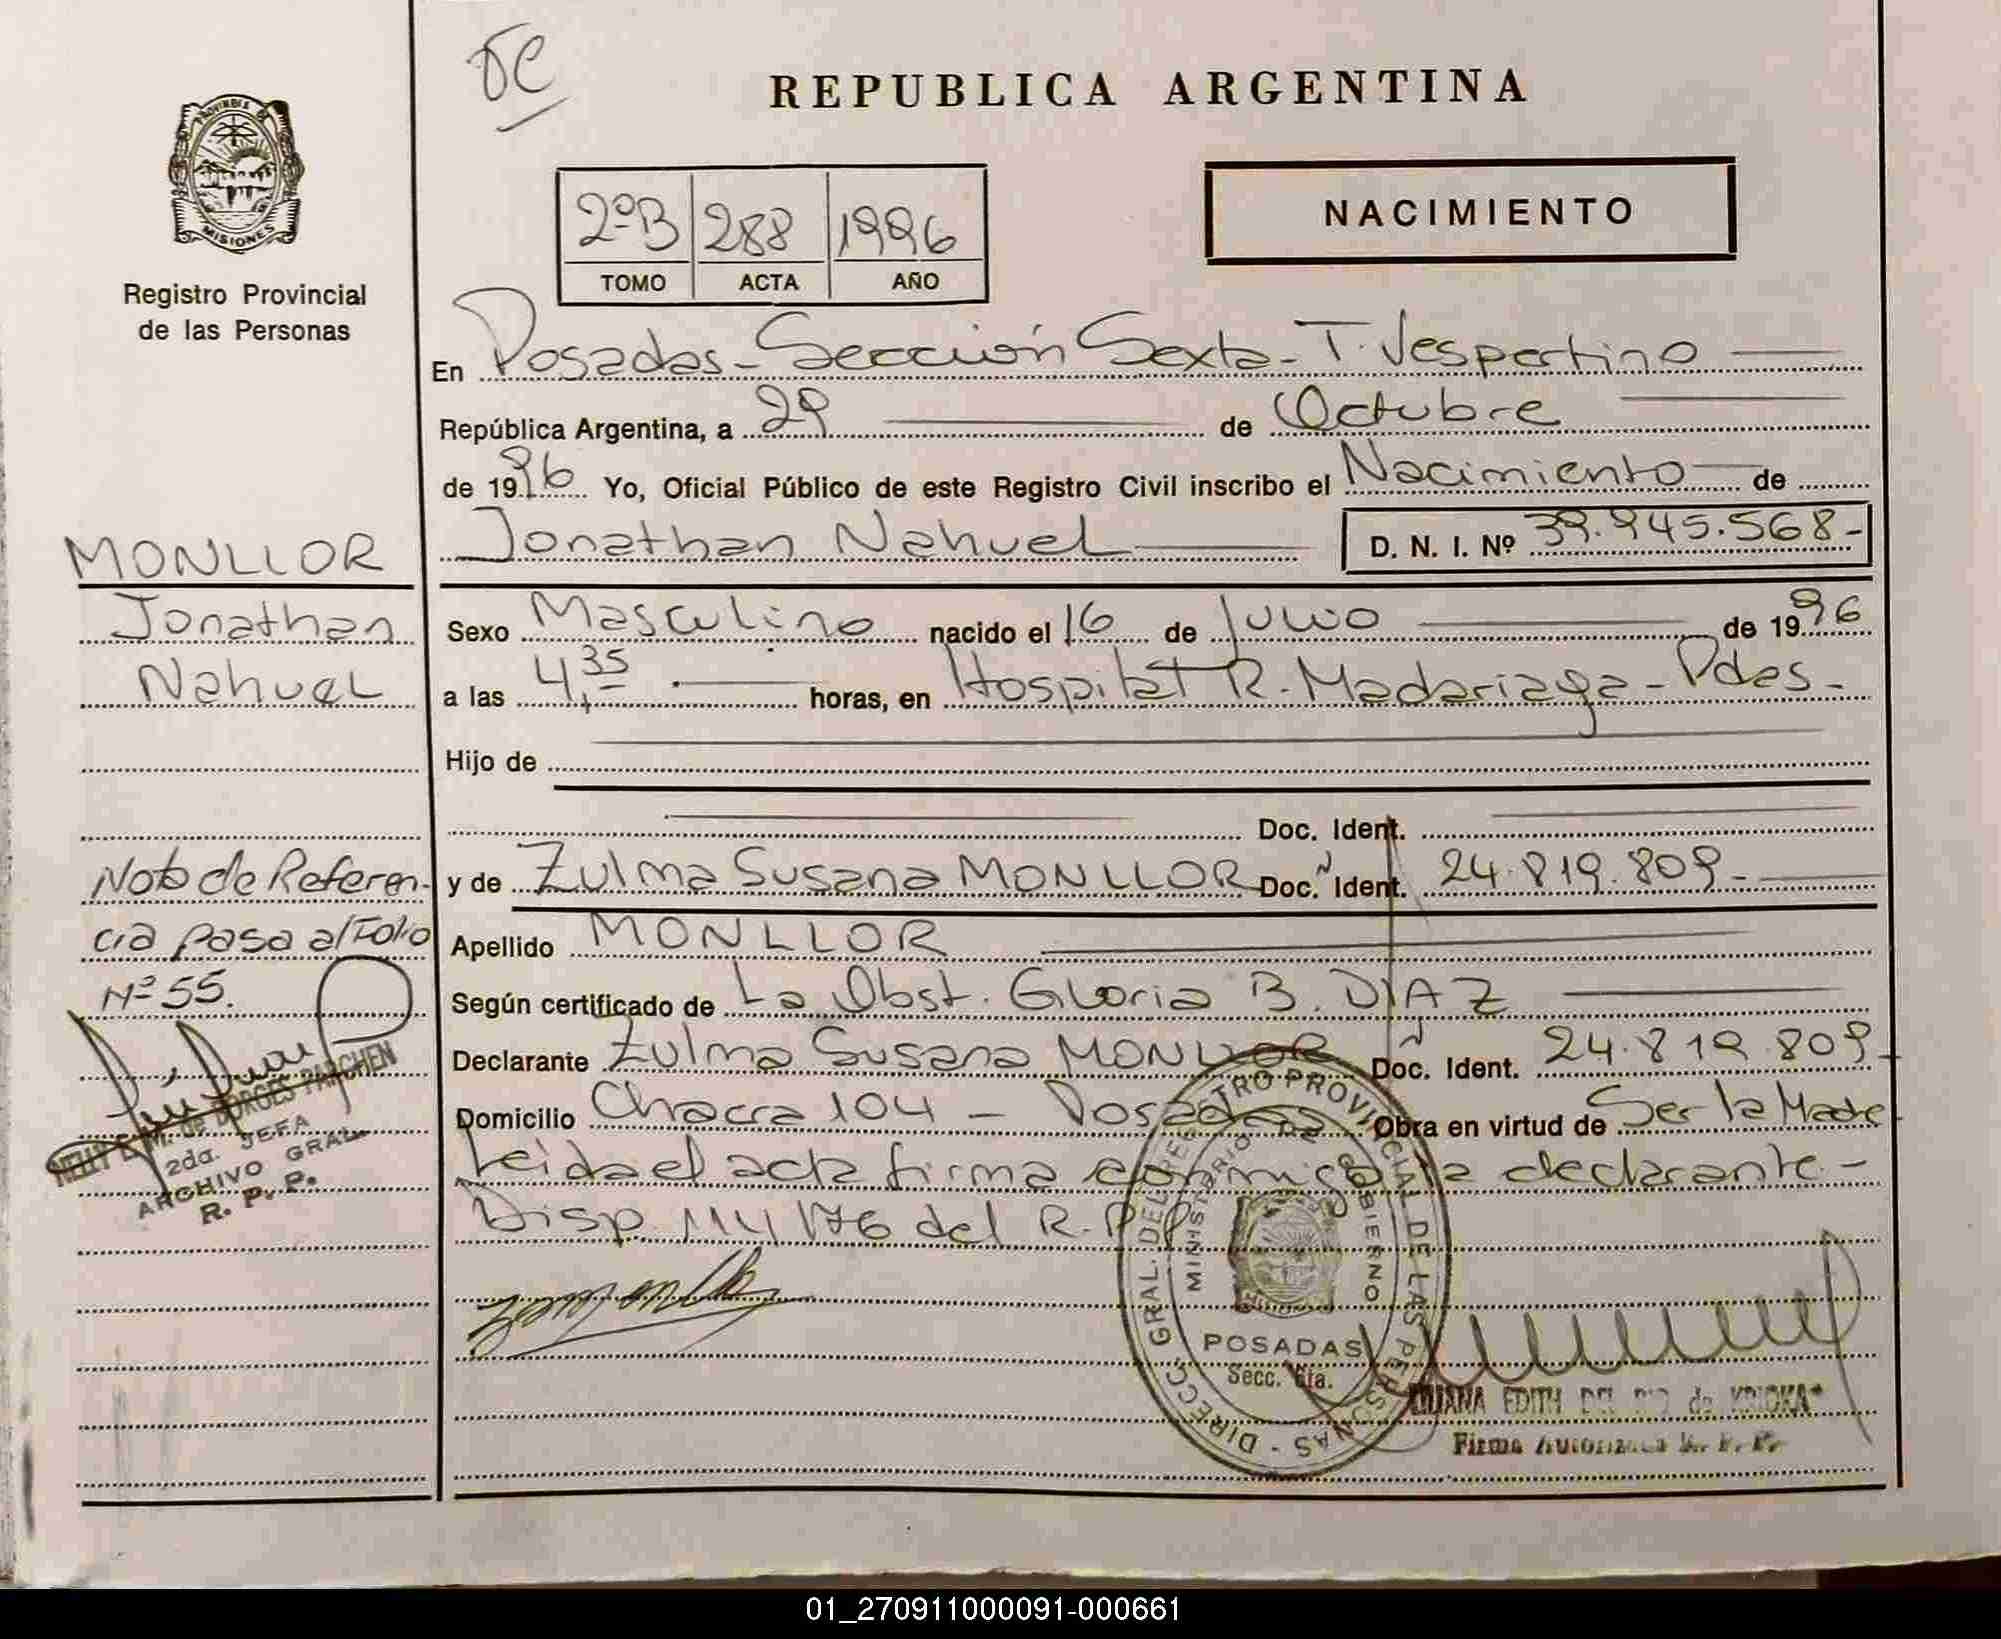 REPUBLICA ARGENTINA
PROVINCIA DE MISIONES
Registro Provincial
de las Personas
2ºB 288 1996
TOMO ACTA AÑO
NACIMIENTO
En Posadas - Sección Sexta - T. Vespertino
República Argentina, a 29 de Octubre
de 1996 Yo, Oficial Público de este Registro Civil inscribo el Nacimiento de
Jonathan Nahuel D. N. I. Nº 39.945.568-
Sexo Masculino nacido el 16 de Julio de 1996
a las 4,35 horas, en Hospital R. Madariaga - Pdas -
Hijo de
Doc. Ident.
y de Zulma Susana MONLLOR Doc. Ident. 24.819.809-
Apellido MONLLOR
Según certificado de La Obst. Gloria B. DIAZ
Declarante Zulma Susana MONLLOR Doc. Ident. 24.819.809-
Domicilio Chacra 104 - Posadas Obra en virtud de Ser la Madre
Leida el acta firma conmigo la declarante -
Disp. 114/76 del R.P.P
MONLLOR
Jonathan
Nahuel
Nota de Referen-
cia pasa al Folio
Nº 55.
NELLY E. M. de BORGES PARCHEN
2da. JEFA
ARCHIVO GRAL.
R. P. P.
DIRECC. GRAL. DEL REGISTRO PROVINCIAL DE LAS PERSONAS -
MINISTERIO GOBIERNO
POSADAS
Secc. 6ta.
LILIANA EDITH DEL de
Firma Autorizada R. P. P.
01_270911000091-000661